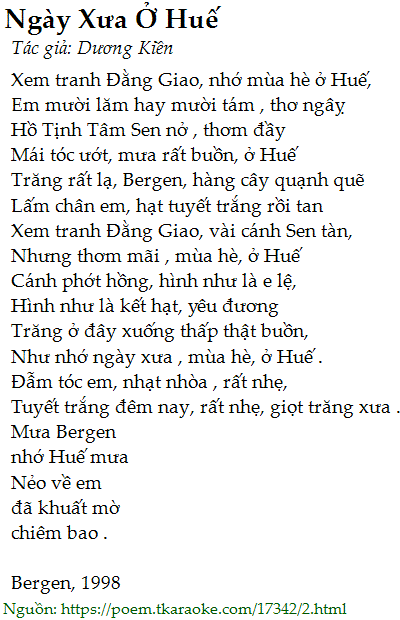 Ngày Xưa Ở Huế
Tác giả: Dương Kiền
Xem tranh Đằng Giao, nhớ mùa hè ở Huế,
Em mười lăm hay mười tám , thơ ngâỵ
Hồ Tịnh Tâm Sen nở , thơm đầy
Mái tóc ướt, mưa rất buồn, ở Huế
Trăng rất lạ, Bergen, hàng cây quạnh quẽ
Lấm chân em, hạt tuyết trắng rồi tan
Xem tranh Đằng Giao, vài cánh Sen tàn,
Nhưng thơm mãi , mùa hè, ở Huế
Cánh phớt hồng, hình như là e lệ,
Hình như là kết hạt, yêu đương
Trăng ở đây xuống thấp thật buồn,
Như nhớ ngày xưa , mùa hè, ở Huế .
Đẫm tóc em, nhạt nhòa , rất nhẹ,
Tuyết trắng đêm nay, rất nhẹ, giọt trăng xưa .
Mưa Bergen
nhớ Huế mưa
Nẻo về em
đã khuất mờ
chiêm bao .
Bergen, 1998
Nguồn: https://poem.tkaraoke.com/17342/2.html